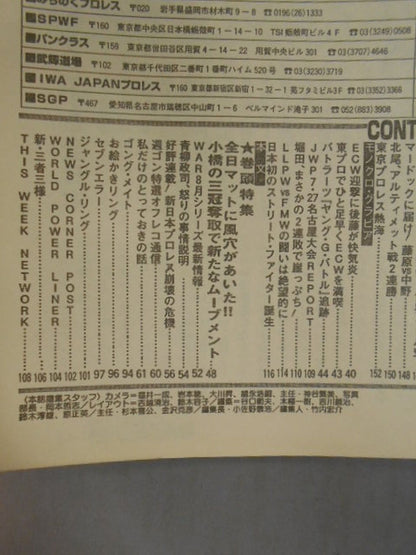 みちのくプロレス 〒020 岩手県盛岡市材木町9-8 ☎0196(26)1333
■SPWF 〒160 東京都中央区日本橋蛎殻町1-14-10 TSI蛎殻町ビル4F ☎03(3249)0508
■パンクラス 〒158 東京都世田谷区用賀4-14-22 用賀中央ビル301 ☎03(3707)4646
■武輝道場 〒102 東京都千代田区二番町1番町ハイム520号 ☎03(3230)3719
■IWA JAPANプロレス 〒160 東京都新宿区新宿1-32-1苑フタミビル3F ☎03(3352)3366
■SGP 〒467 愛知県名古屋市瑞穂区中山町1-6 ベルマインド滝子301 ☎052(883)3908
CONT
マードックに届け! 藤原vs中野 148
北尾、アルティメット戦2連勝 150
東京プロレス熱海 152
モノクログラビア
ECW迎撃に後藤が快気炎 40
東プロでひと足早くECWを満喫 43
バトラーツ「ヤングG・バトル」追跡 44
JWP7・27名古屋大会REPORT 109
堀田、まさかの2連敗で崖っぷち! 110
LLPWvsFMWの闘いは絶望的に 114
日本初のストリート・ファイター誕生 116
本文
★巻頭特集
全日マットに風穴があいた!!
小橋の三冠奪取で新たなムーブメント 48
WAR8月シリーズ最新情報 52
青柳政司、怒りの事情説明 54
好評連載!新日本プロレス崩壊の危機 58
週ゴン特選オフレコ通信 61
私だけのとっておきの話 60
ゴング・メイト 94
お絵かきリング 96
セブンエラー 97
ジャングル・リング 101
NEWS CORNER POST 102
WORLD POWER LINER 104
新・三者三様 106
THIS WEEK NETWORK 108